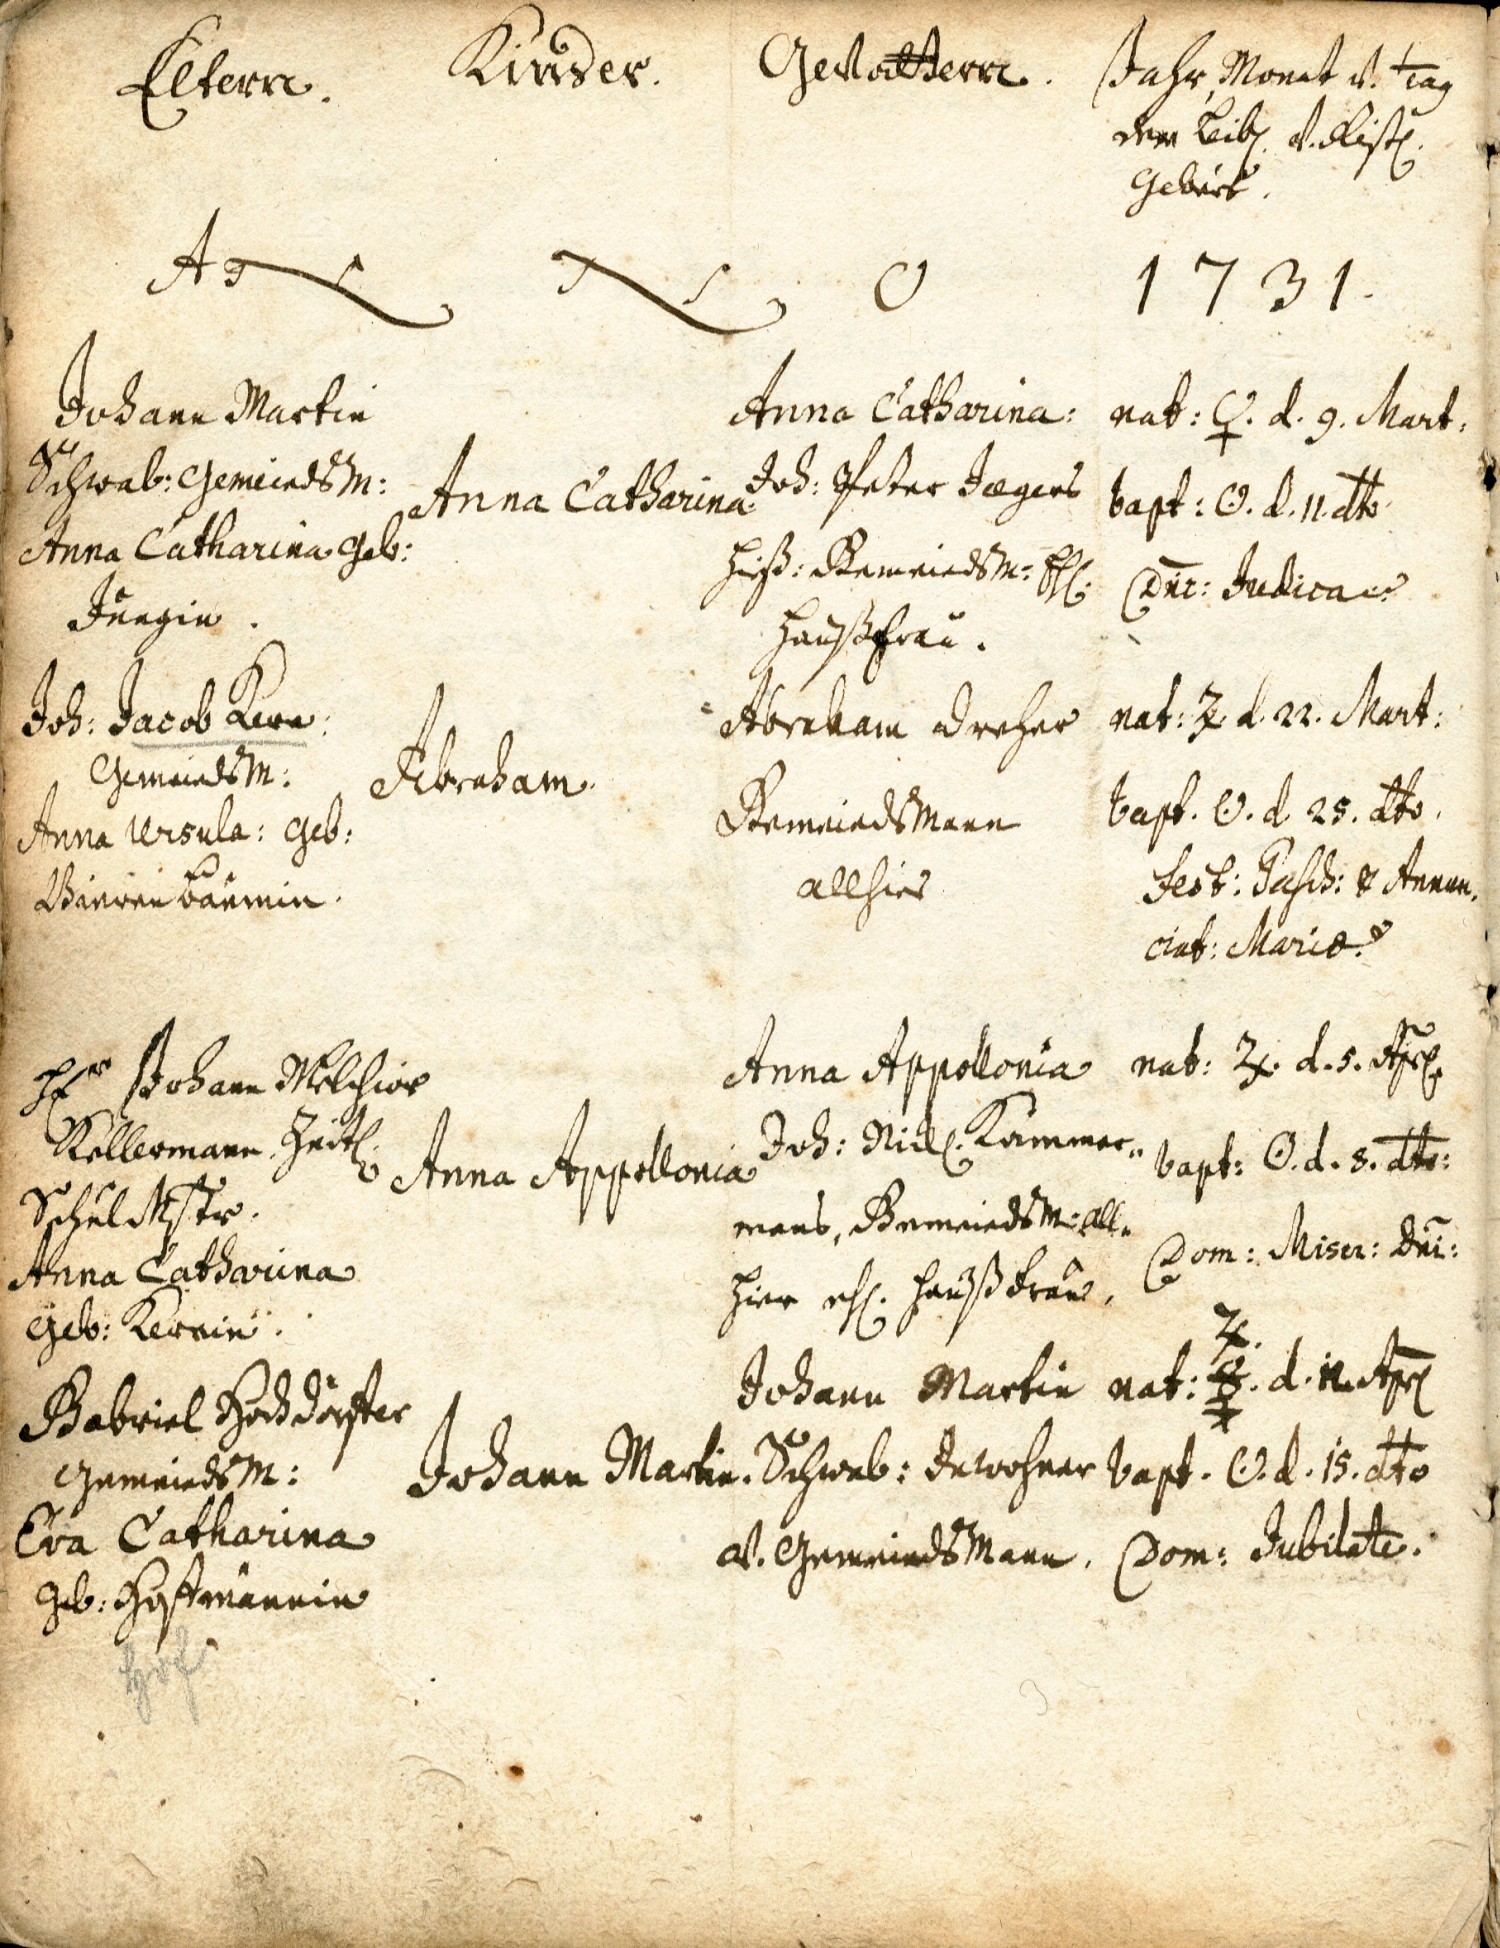 Eltern.
Kinder.
Gevattern.
Jahr, Monat u. Tag
der leibl. u. Christl.
Geburt.
A N N O 1731.
Johann Martin
Schwab: GemeindsM:
Anna Catharina geb:
Jungin.
Anna Catharina.
Anna Catharina:
Joh: Peter Jægers
hieß: GemeindsM: Ehl:
Haußfrau.
nat: ♀. d. 9. Mart:
bapt: ☉. d. 11. dto
Dnc: Judica
Joh: Jacob Kern:
GemeindsM:
Anna Ursula: geb:
Bierenbäumin.
Abraham.
Abraham Dreher
GemeindsMann
allhier
nat: ♃. d. 22. Mart:
bapt. ☉. d. 25. dto.
fest: Pasch: & Annun-
ciat: Mariæ.
Hr Johann Melchior
Kellermann. Zeitl.
SchulMstr.
Anna Catharina
geb: Kernin.
Anna Appollonia
Anna Appollonia
Joh: Nicl. Kammer-
mans, GemeindsM: all-
hier ehl. Haußfrau.
nat: ♃. d. 5. Apr.
bapt: ☉. d. 8. dto:
Dom: Miser: Dni:
Gabriel Hochdörffer
GemeindsM:
Eva Catharina
geb: Hoffmännin
Hof
Johann Martin.
Johann Martin
Schwab: Inwohner
u. GemeindsMann.
♃.
nat: d. 12. Apr
bapt. ☉. d. 15. dto
Dom: Jubilate.